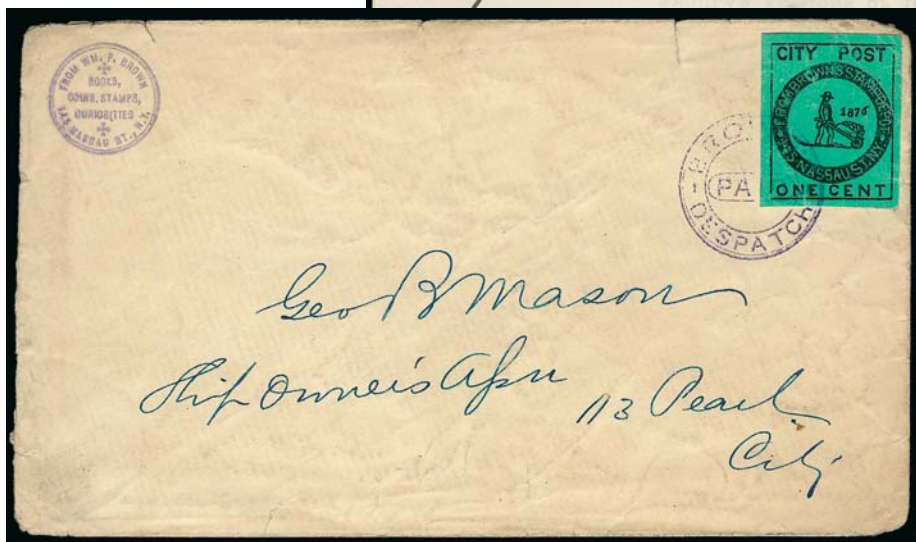 FROM WM. P. BROWN
BOOKS,
COINS, STAMPS,
CURIOSITIES
145 NASSAU ST., N.Y.
CITY POST
FROM BROWN'S STAMP DEPOT
1876
145 NASSAU ST. N.Y.
ONE CENT
BRO
PA
DESPATCH
Geo B Mason
Ship Owneis Assn 113 Pearl
City